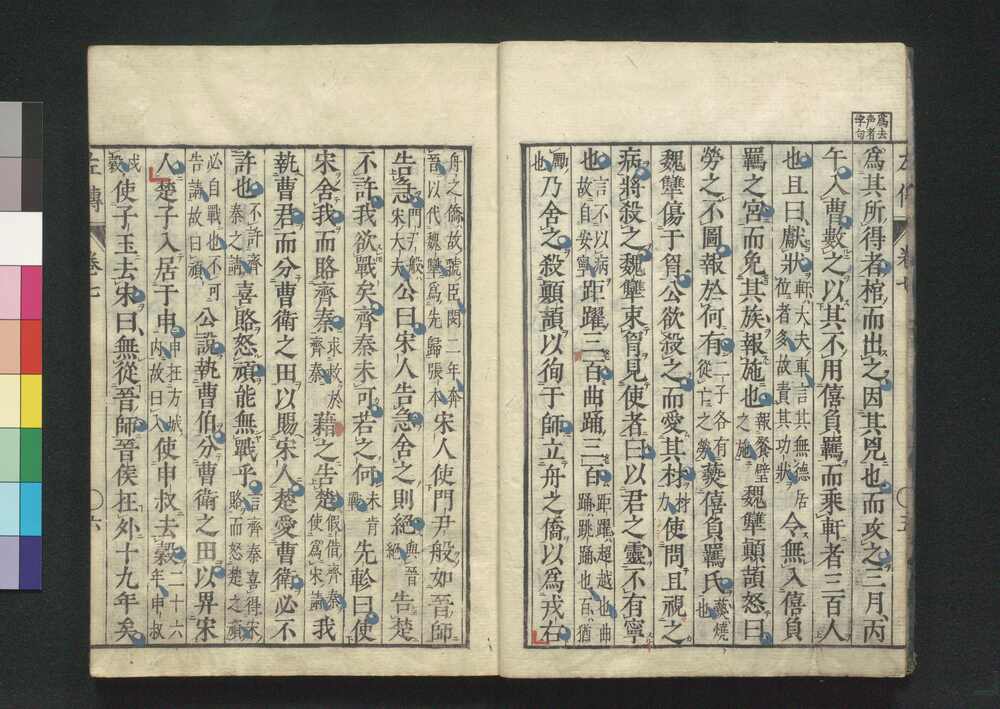 爲去
声者
字句
爲其所得者棺而出之因其兇也而攻之三月丙
午入曹數之以其不用僖負羈而乘軒者三百人
也且曰獻狀軒大夫車言其無德居位者多故責其功狀令無入僖負
羈之宮而免其族報施也報飱璧之施魏犨顛頡怒曰
勞之不圖報於何有二子各有從亡之勞爇僖負羈氏爇燒也
魏犨傷于胷公欲殺之而愛其材材力使問且視之
病將殺之魏犨束胷見使者曰以君之靈不有寧
也言不以病故自安寧距躍三百曲踊三百距躍超越也曲踊跳踊也百猶
勵也乃舍之殺顛頡以徇于師立舟之僑以爲戎右
舟之僑故虢臣閔二年奔晉以代魏犨爲先歸張本宋人使門尹般如晉師
告急門尹般宋大夫公曰宋人告急舍之則絕與晉絕告楚
不許我欲戰矣齊秦未可若之何未肯戰先軫曰使
宋舍我而賂齊秦求救於齊秦藉之告楚假借齊秦使爲宋請我
執曹君而分曹衛之田以賜宋人楚愛曹衛必不
許也不許齊秦之請喜賂怒頑能無戰乎言齊秦喜得宋賂而怒楚之頑
必自戰也不可告請故曰頑公說執曹伯分曹衛之田以畀宋
人楚子入居于申申在方城内故曰入使申叔去穀二十六年申叔
戍穀使子玉去宋曰無從晉師晉侯在外十九年矣
左傳 卷七 六